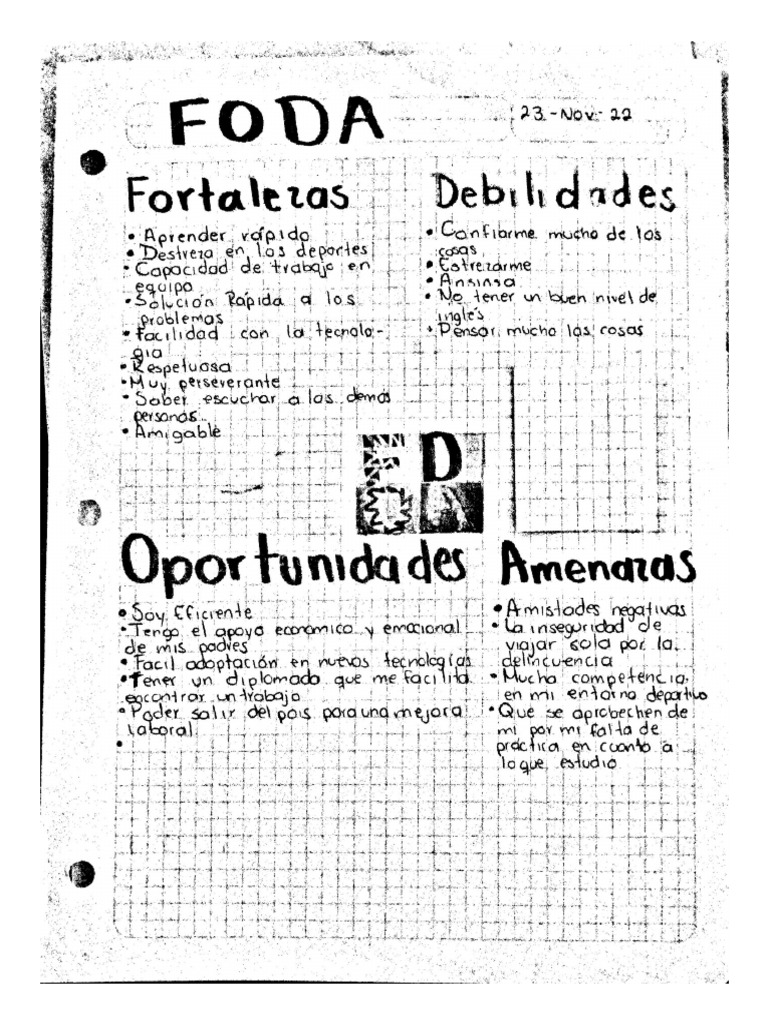 FODA
23.-Nov.-22
Fortalezas
• Aprender rápido
• Destreza en los deportes
• Capacidad de trabajo en
equipo
• Solución Rápida a los
problemas
• Facilidad con la tecnolo-
gia
• Respetuosa
• Muy perseverante
• Saber escuchar a las demás
personas
• Amigable
Debilidades
• Confiarme mucho de las
cosas
• Estrezarme
• Ansinsa
• No tener un buen nivel de
inglés
• Pensar mucho las cosas
F D
O A
Oportunidades
• Soy Eficiente
• Tengo el apoyo economico y emocional
de mis padres
• Facil adoptación en nuevas tecnologías
• Tener un diplomado que me facilita
encontrar un trabajo
• Poder salir del pais para una mejora
laboral
•
Amenazas
• Amistades negativas
• La inseguridad de
viajar sola por la
delincuencia
• Mucha competencia
en mi entorno deportivo
• Que se aprobechen de
mi por mi falta de
práctica en cuanto a
lo que estudio